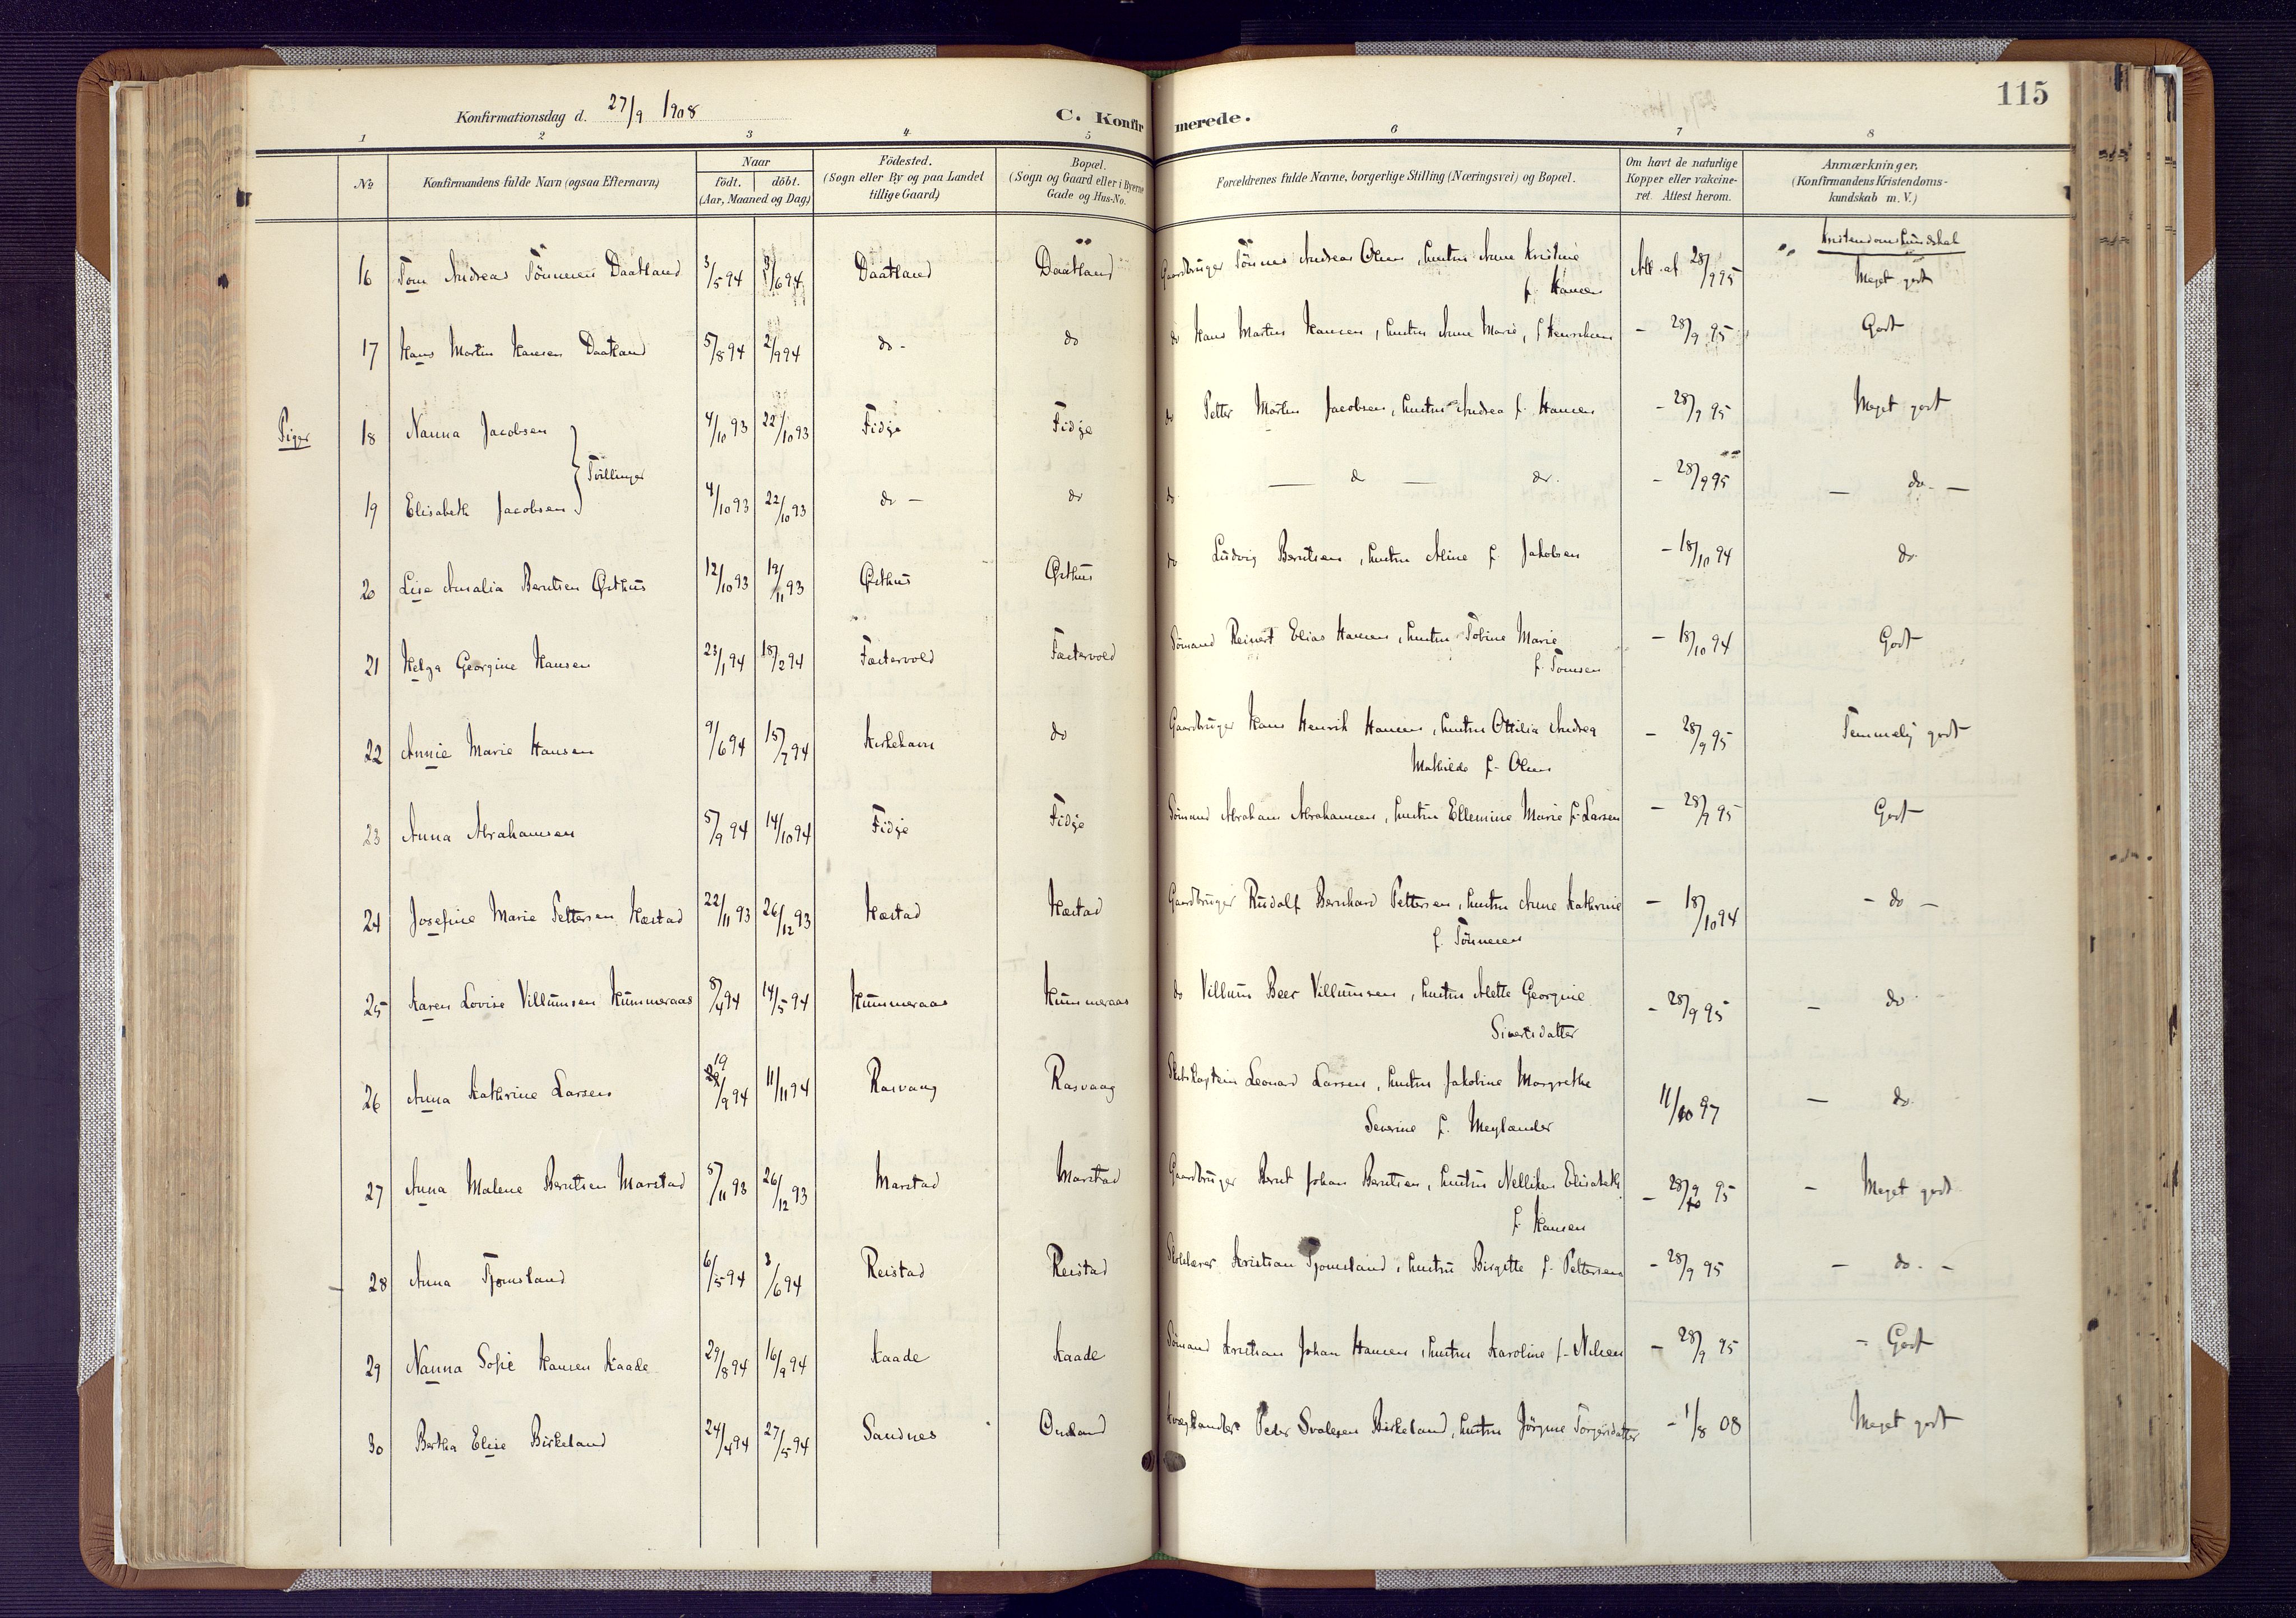 Konfirmationsdag d. 27/9 1908
C. Konfirmerede.
115
1 2 3 4 5 6 7 8
No
Konfirmandens fulde Navn (ogsaa Efternavn)
Naar
födt. döbt.
(Aar, Maaned og Dag)
Födested.
(Sogn eller By og paa Landet
tillige Gaard)
Bopæl.
(Sogn og Gaard eller i Byerne
Gade og Hus-No.
Forældrenes fulde Navne, borgerlige Stilling (Næringsvei) og Bopæl.
Om havt de naturlige
Kopper eller vakcine-
ret. Attest herom.
Anmærkninger,
(Konfirmandens Kristendoms-
kundskab m. V.)
Kristendomskundskab
16 Tom Andreas Tönnesen Daatland 3/5 94 3/6 94 Daatland Daatland Gaardbruger Tönnes Andreas Olsen, hustru Anne Kristine
f. Hansen
Att. af 28/9 95 Meget godt
17 Hans Martin Hansen Daatland 5/8 94 2/9 94 do - do do Hans Martin Hansen, hustru Anne Marie, f. Henriksen - 28/9 95 Godt
Piger
18 Nanna Jacobsen 4/10 93 22/10 93 Fidje Fidje do Petter Martin Jacobsen, hustru Andrea f. Hansen - 28/9 95 Meget godt
Tvillinger
19 Elisabeth Jacobsen 4/10 93 22/10 93 do - do do — do — do. - 28/9 95 — do. —
20 Lise Amalia Berntsen Østhus 12/10 93 19/11 93 Østhus Østhus do Ludvig Berntsen, hustru Aline f. Jakobsen - 18/10 94 do
21 Helga Georgine Hansen 23/1 94 18/2 94 Fastervold Fastervold Sömand Reinert Elias Hansen, hustru Tobine Marie
f. Tomsen
- 18/10 94 Godt
22 Annie Marie Hansen 9/6 94 15/7 94 Kirkehavn do Gaardbruger Hans Henrik Hansen, hustru Ottilia Andrea
Mathilde f. Olsen
- 28/9 95 Temmelig godt
23 Anna Abrahamsen 5/9 94 14/10 94 Fidje Fidje Sömand Abraham Abrahamsen, hustru Ellemine Marie f. Larsen - 28/9 95 Godt
24 Josefine Marie Pettersen Hæstad 22/11 93 26/12 93 Hæstad Hæstad Gaardbruger Rudolf Bernhard Pettersen, hustru Anne Kathrine
f. Tönnesen
- 18/10 94 - do -
25 Karen Lovise Villumsen Hummeraas 8/4 94 14/5 94 Hummeraas Hummeraas do Villum Beer Villumsen, hustru Mette Georgine
Sivertsdatter
- 28/9 95 - do
26 Anna Kathrine Larsen 19/9 94 11/11 94 Rasvaag Rasvaag Skibskaptein Leonard Larsen, hustru Jakobine Margrethe
Severine f. Meylander
11/10 97 — do.
27 Anna Malene Berntsen Marstad 5/11 93 26/12 93 Marstad Marstad Gaardbruger Bernt Johan Berntsen, hustru Nelliken Elisabeth
f. Hansen
- 28/9 95 - Meget godt
28 Anna Tjomsland 6/5 94 3/6 94 Reistad Reistad Skolelærer Kristian Tjomsland, hustru Birgitte f. Pettersen - 28/9 95 — do. -
29 Nanna Sofie Hansen Kaade 29/8 94 16/9 94 Kaade Kaade Sömand Kristian Johan Hansen, hustru Karoline f. Nilsen - 28/9 95 - Godt
30 Bertha Elise Birkeland 24/4 94 27/5 94 Sandnes Peder Svalesen Birkeland, hustru Jörgine Torgersdatter - 1/8 08 Meget godt